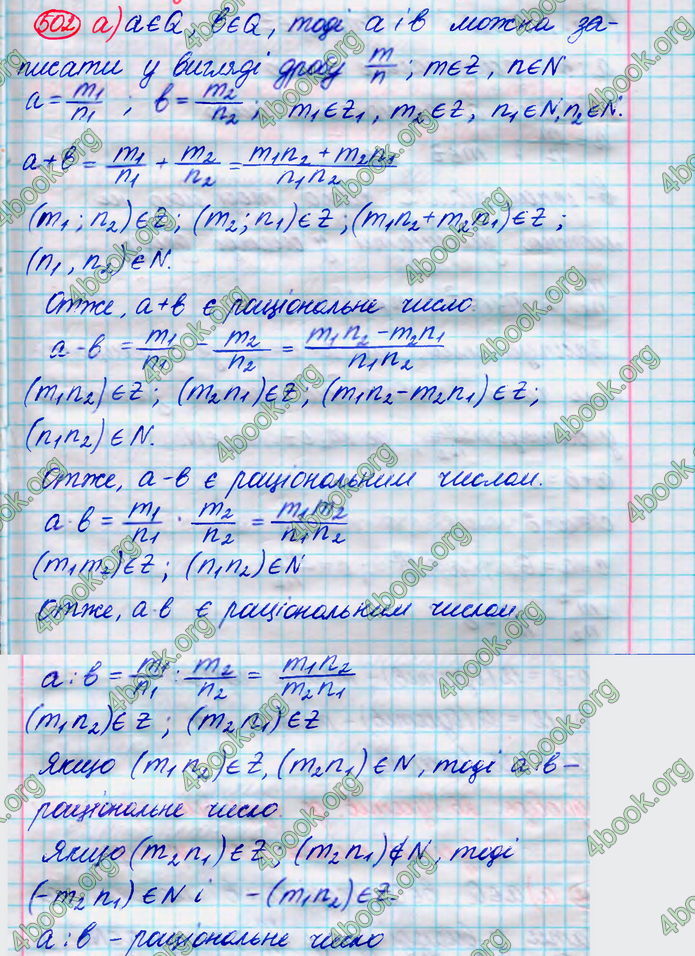 502 а) a∈Q, b∈Q, тоді a і b можна за-
писати у вигляді дробу m/n; m∈Z, n∈N
a = m₁/n₁; b = m₂/n₂; m₁∈Z₁, m₂∈Z, n₁∈N, n₂∈N.
a+b = m₁/n₁ + m₂/n₂ = (m₁n₂+m₂n₁)/(n₁n₂)
(m₁; n₂)∈Z; (m₂; n₁)∈Z; (m₁n₂+m₂n₁)∈Z;
(n₁, n₂)∈N.
Отже, a+b є раціональне число
a-b = m₁/n₁ - m₂/n₂ = (m₁n₂-m₂n₁)/(n₁n₂)
(m₁n₂)∈Z; (m₂n₁)∈Z; (m₁n₂-m₂n₁)∈Z;
(n₁n₂)∈N.
Отже, a-b є раціональним числом.
a·b = m₁/n₁ · m₂/n₂ = m₁m₂/n₁n₂
(m₁m₂)∈Z; (n₁n₂)∈N
Отже, a·b є раціональним числом
a:b = m₁/n₁ : m₂/n₂ = m₁n₂/m₂n₁
(m₁n₂)∈Z; (m₂n₁)∈Z
Якщо (m₁n₂)∈Z, (m₂n₁)∈N, тоді a:b –
раціональне число.
Якщо (m₂n₁)∈Z, (m₂n₁)∉N, тоді
(-m₂n₁)∈N і -(m₁n₂)∈Z.
a:b – раціональне число
4book.org